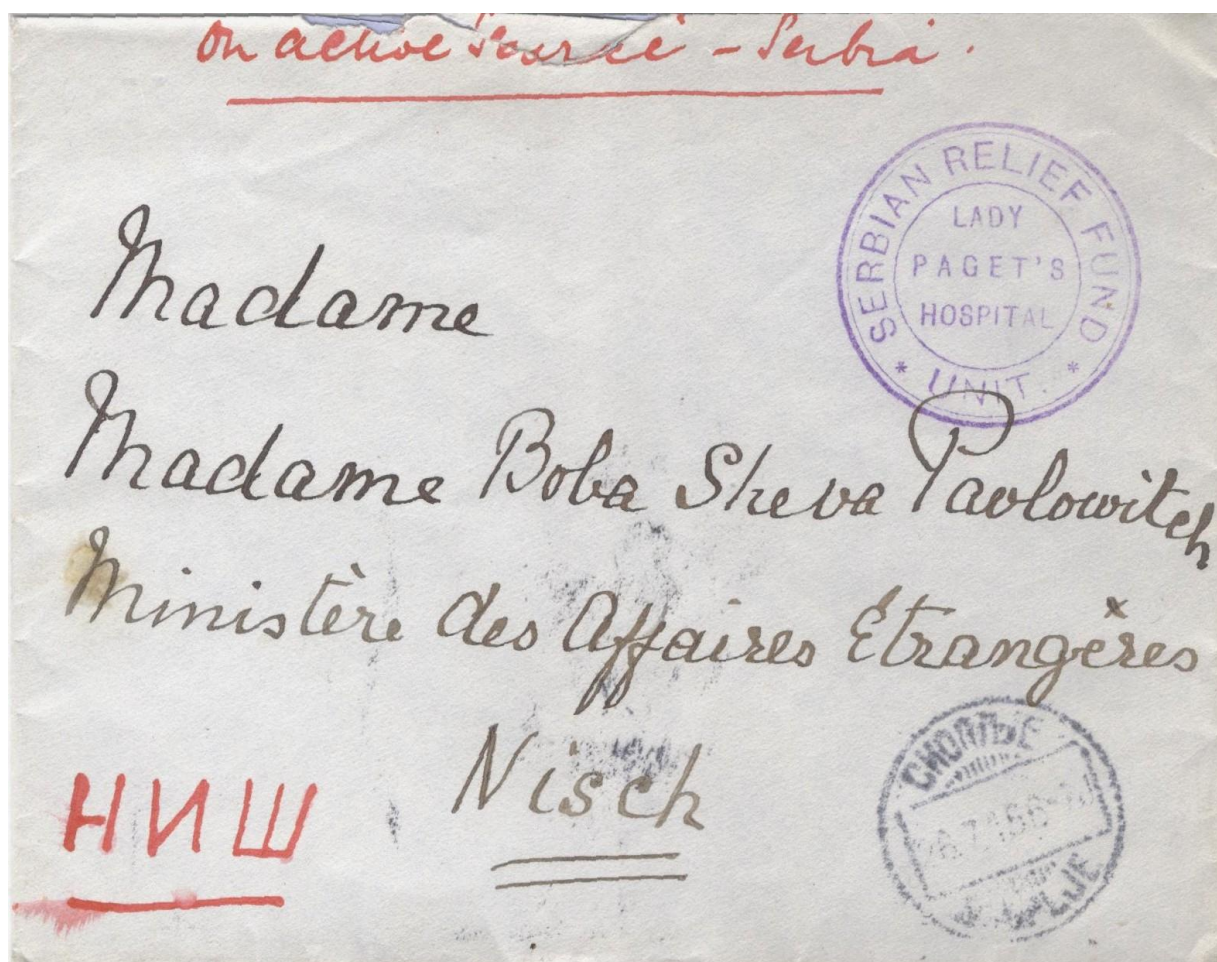 On active Service - Serbia.
SERBIAN RELIEF FUND
LADY
PAGET'S
HOSPITAL
* UNIT. *
Madame
Madame Boba Sheva Pavlowitch
Ministère des Affaires Etrangères
Nisch
НИШ
СКОПЉЕ